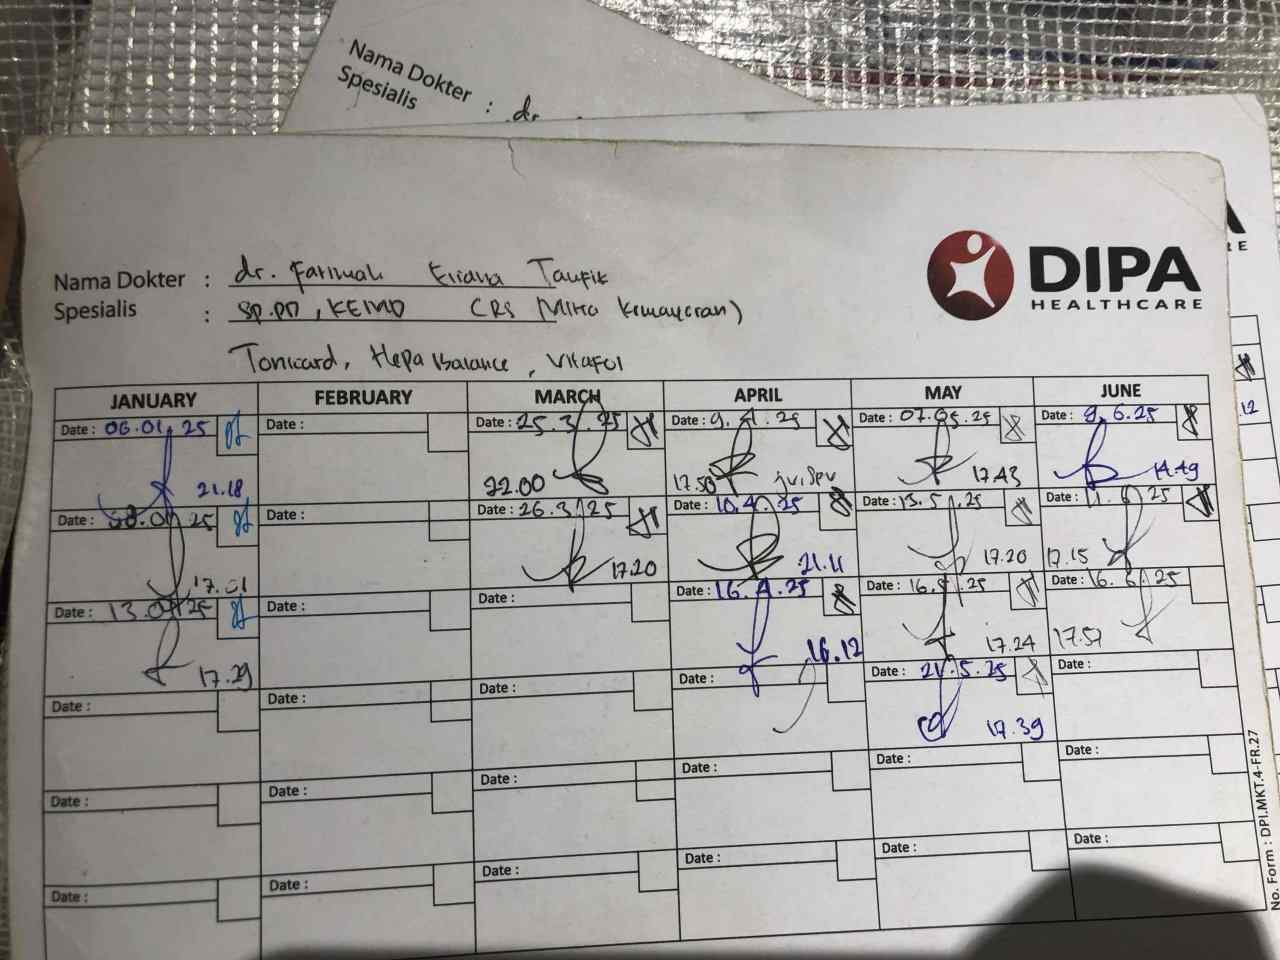 Nama Dokter
Spesialis : dr.
DIPA
HEALTHCARE
Nama Dokter : dr. Fatimah Eliana Taufik
Spesialis : Sp.PD, KEMD CRS (Mitra Kemayoran)
Tonicard, Hepa Balance, Vitafol
JANUARY FEBRUARY MARCH APRIL MAY JUNE
Date : 06.01.25 Date : Date : 25.3.25 Date : 9.4.25 Date : 07.05.25 Date : 9.6.25
21.18 22.00 17.50 17.43 14.49
Date : 08.01.25 Date : Date : 26.3.25 Date : 10.4.25 Date : 13.5.25 Date : 11.6.25
17.01 17.20 21.11 17.20 17.15
Date : 13.01.25 Date : Date : Date : 16.4.25 Date : 16.5.25 Date : 16.6.25
17.29 16.12 17.24 17.57
Date : Date : Date : Date : Date : 21.5.25 Date :
17.39
Date : Date : Date : Date : Date : Date :
Date : Date : Date : Date : Date : Date :
No. Form : DPI.MKT.4-FR.27
RE
12